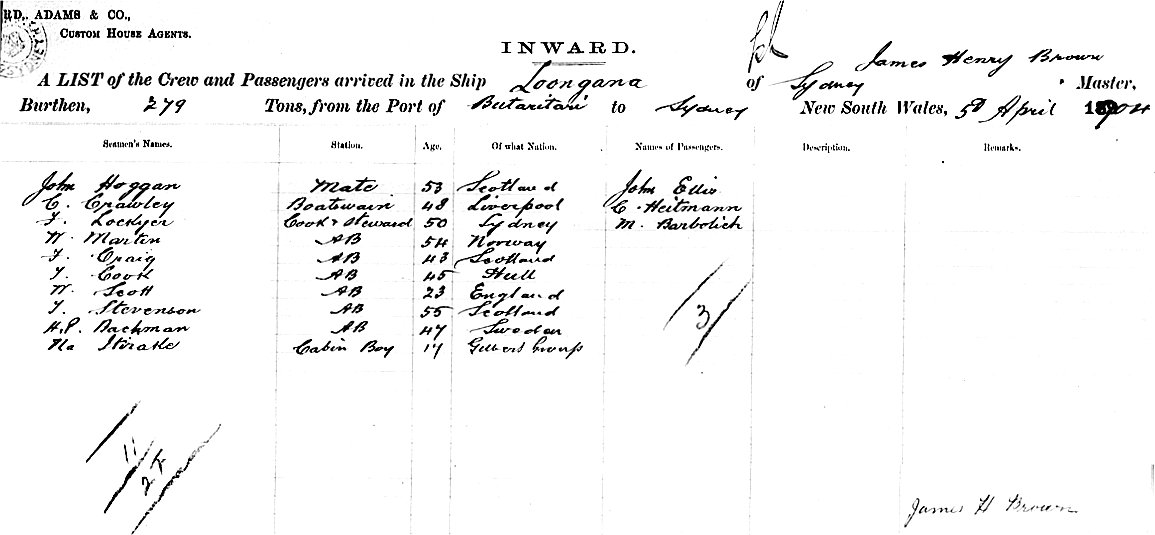 RD, ADAMS & CO.,
CUSTOM HOUSE AGENTS.
INWARD.
James Henry Brown
A LIST of the Crew and Passengers arrived in the Ship Loongana of Sydney Master,
Burthen, 279 Tons, from the Port of Butaritari to Sydney New South Wales, 5th April 1904
Seamen's Names. Station. Age. Of what Nation. Names of Passengers. Description. Remarks.
John Hoggan Mate 53 Scotland John Ellis
C. Crawley Boatswain 48 Liverpool C. Heitmann
F. Lockyer Cook & Steward 50 Sydney M. Barbolich
W. Martin AB 54 Norway
F. Craig AB 43 Scotland
T. Cook AB 45 Hull
W. Scott AB 23 England
T. Stevenson AB 55 Scotland
H.P. Backman AB 47 Sweden
Na Itirake Cabin Boy 17 Gilbert Group
3
11
James H Brown